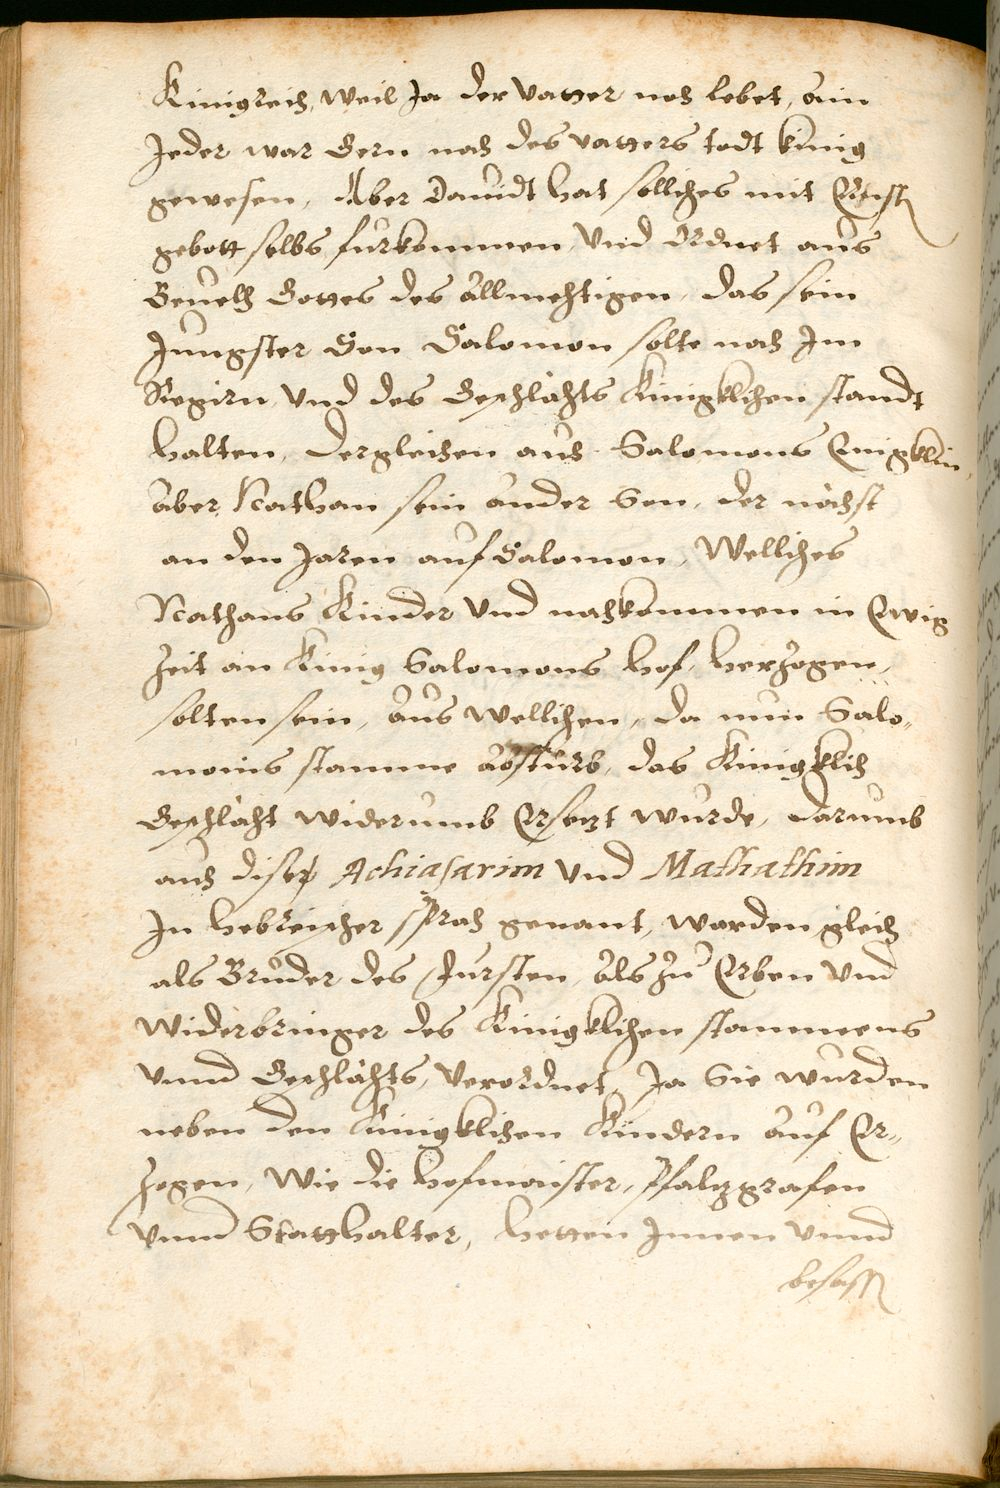 Kinigreich, weil Ja der vatter noch lebet, ain
Jeder war Gern nach des vatters todt kinig
gewesen, Aber Dauidt hat solliches mit Ernst
gebott selbs furkommen, Und Ordnet aus
Beuelh Gottes des Allmechtigen, das sein
Jungster Son Salomon solte nach Im
Regirn, Und des Geschlächts Kinigklichen standt
halten, dergleichen auch Salomons
Aber Nathan sein ander Son, der nächst
an den Jaren auf Salomon, Welliches
Nathans Kinder Und nachkommen in Ewig
Zeit an Kinig Salomons hof, herzogen
solten sein, Aus wellichen, da nun Salo„
monis stamme Abstürb, das Kinigklich
Geschlächt widerumb Ersetzt wurde, darumb
auch diser Achiasarim Und Mathathim
In hebreischer sprach genant, worden gleich
als Brüder des Fursten, Als zu Erben Und
Widerbringer des Kinigklichen stammens
Unnd Geschlächts, Verordnet, Ja Sie wurden
neben den Kinigklichen Kindern Auf Er„
zogen, Wie die hofmaister, Pfaltzgrafen
Unnd Statthalter, hetten Innen Unnd
besass